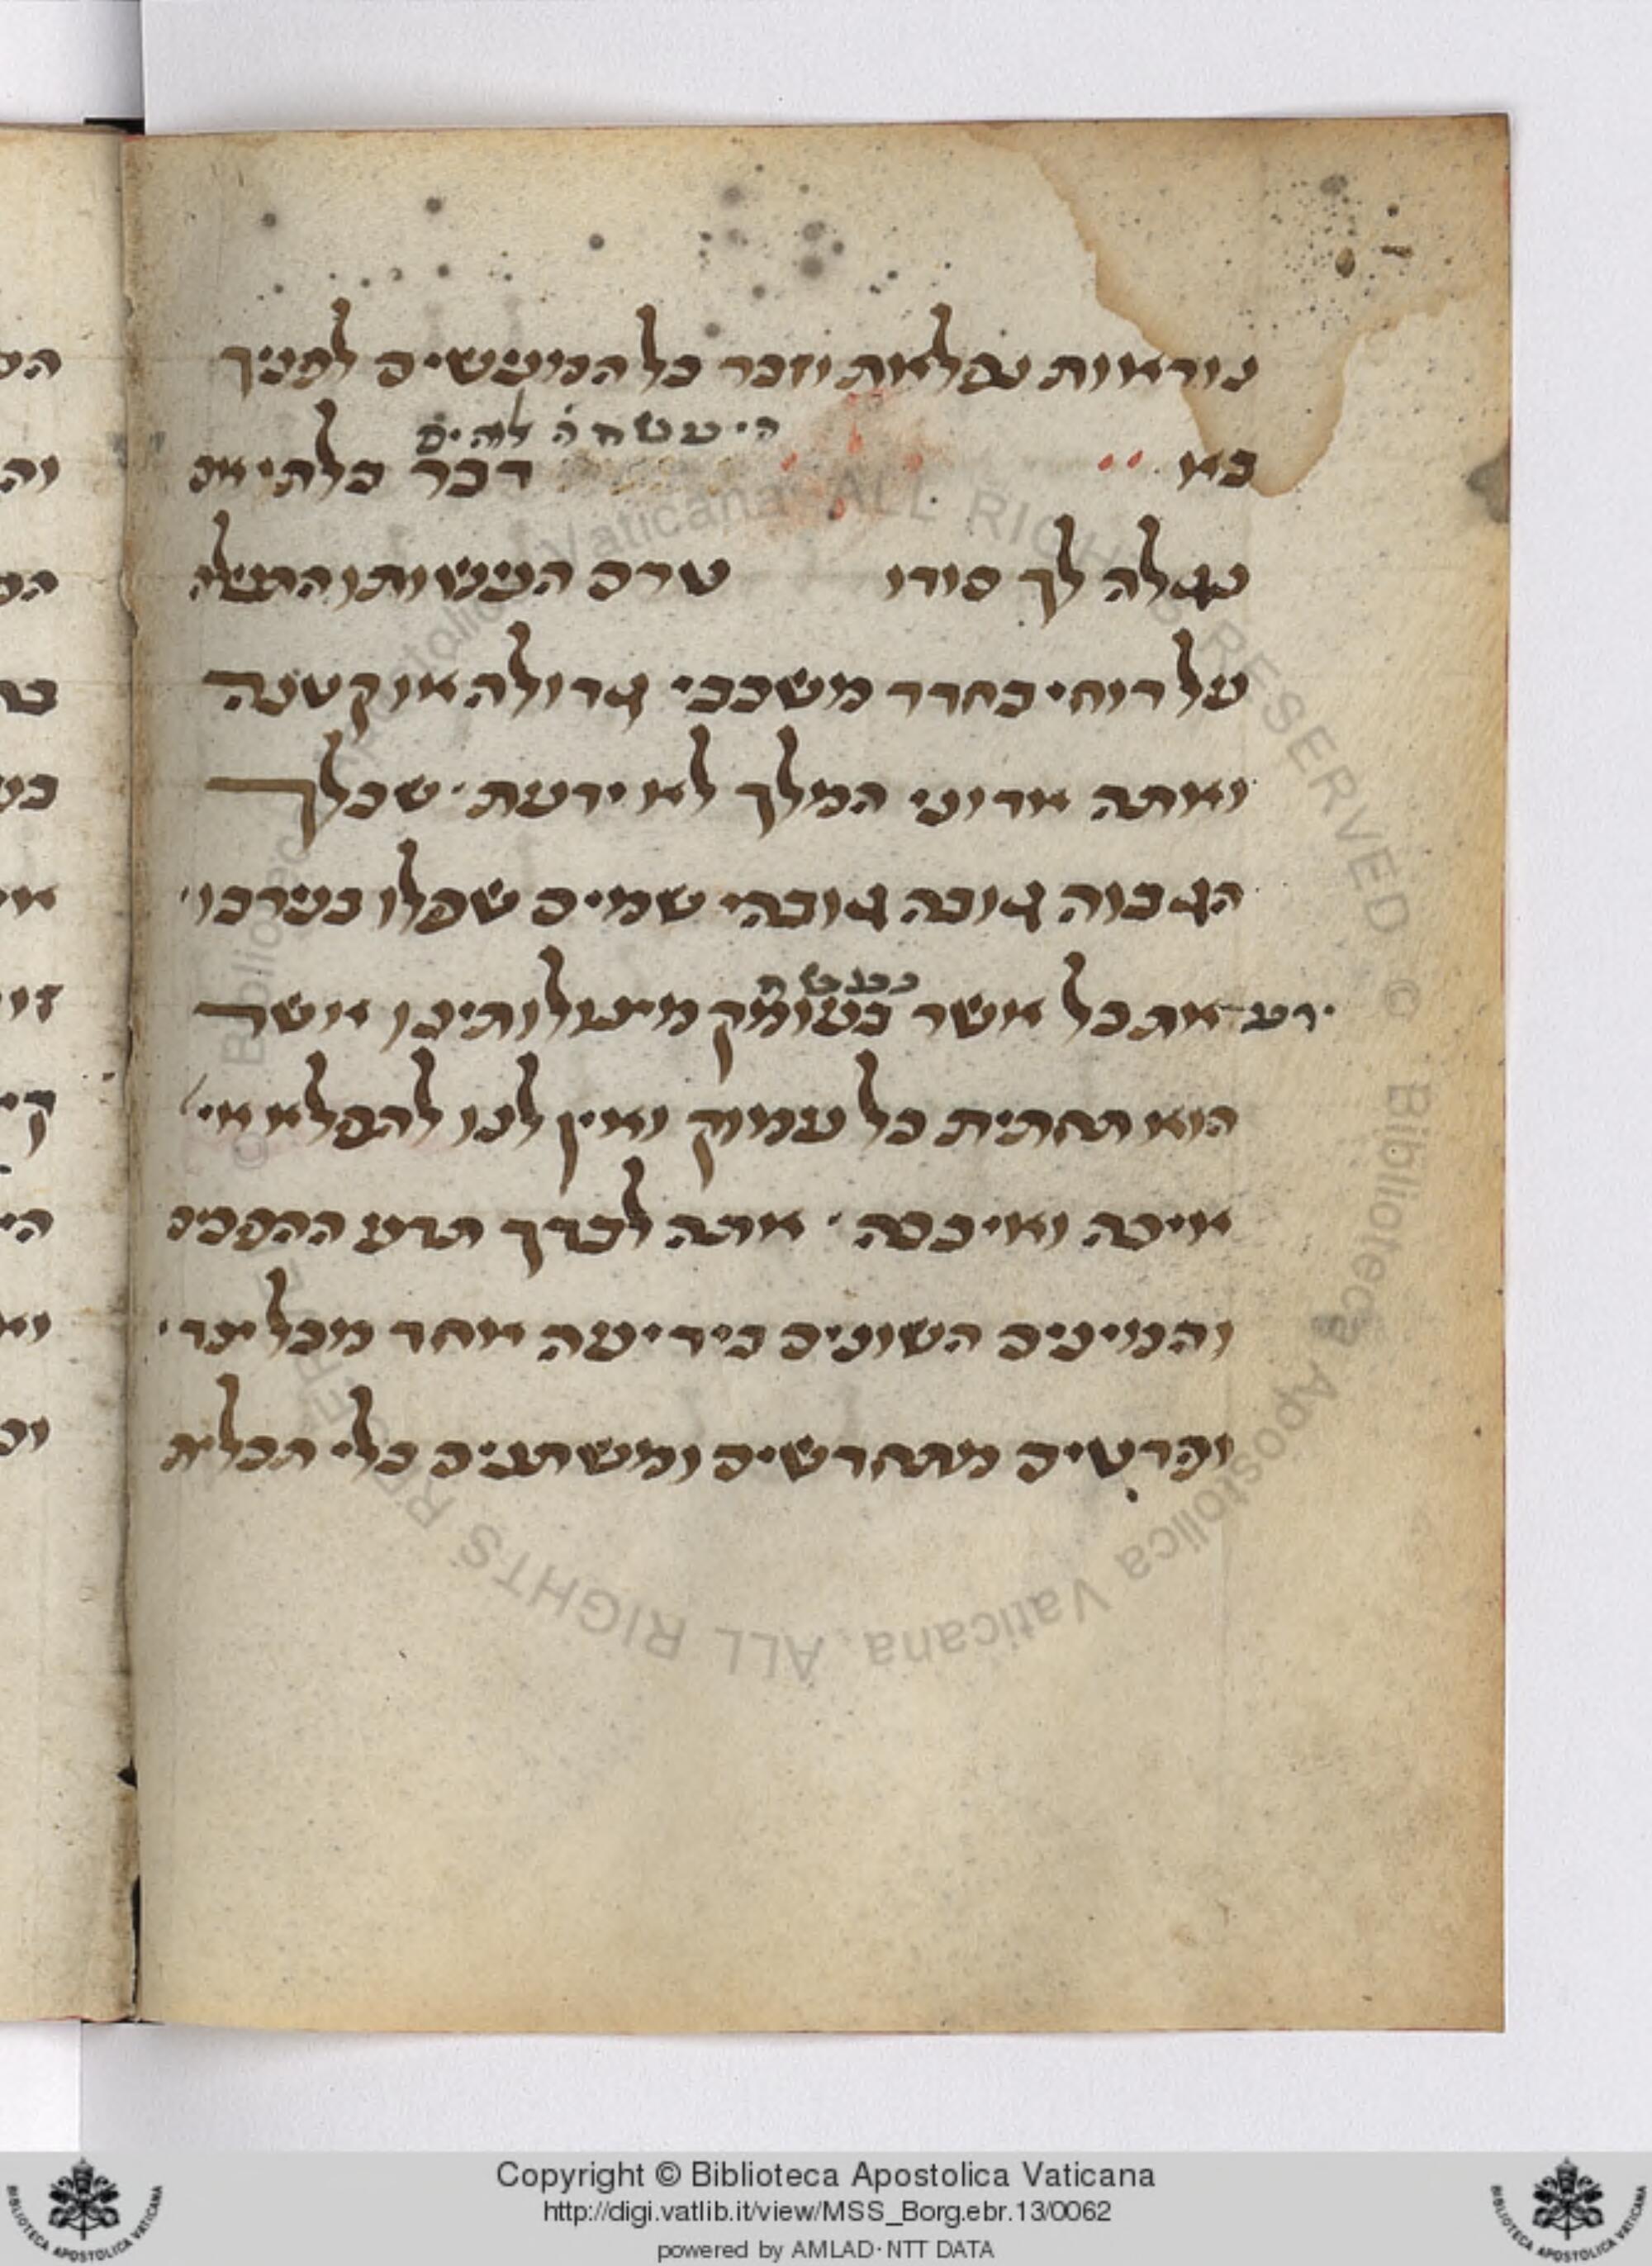 נוראות נפלאות וזכר כל המעשים לפניך
הי עשה ה להים
בא דבר בלתי אם
נגלה לך סודו טרם העשותו
על רוחי בחדר משכבי גדולה או קטנה
ואתה אדוני המלך לא ידעת שכלך
הגבוה גובה גובהי שמים שפלו בערכו
ידע את כל אשר בעומק אשר
הוא תחתית כל עמוק ואין לנו להפלא אי
איכה ואיככה אתה לבדך תדע ההסכמ
והמינים השונים בידיעה אחד מכל צד
ופרטים מתחדשים ומשתנים בלי תכלית
Copyright © Biblioteca Apostolica Vaticana
http://digi.vatlib.it/view/MSS_Borg.ebr.13/0062
powered by AMLAD·NTT DATA